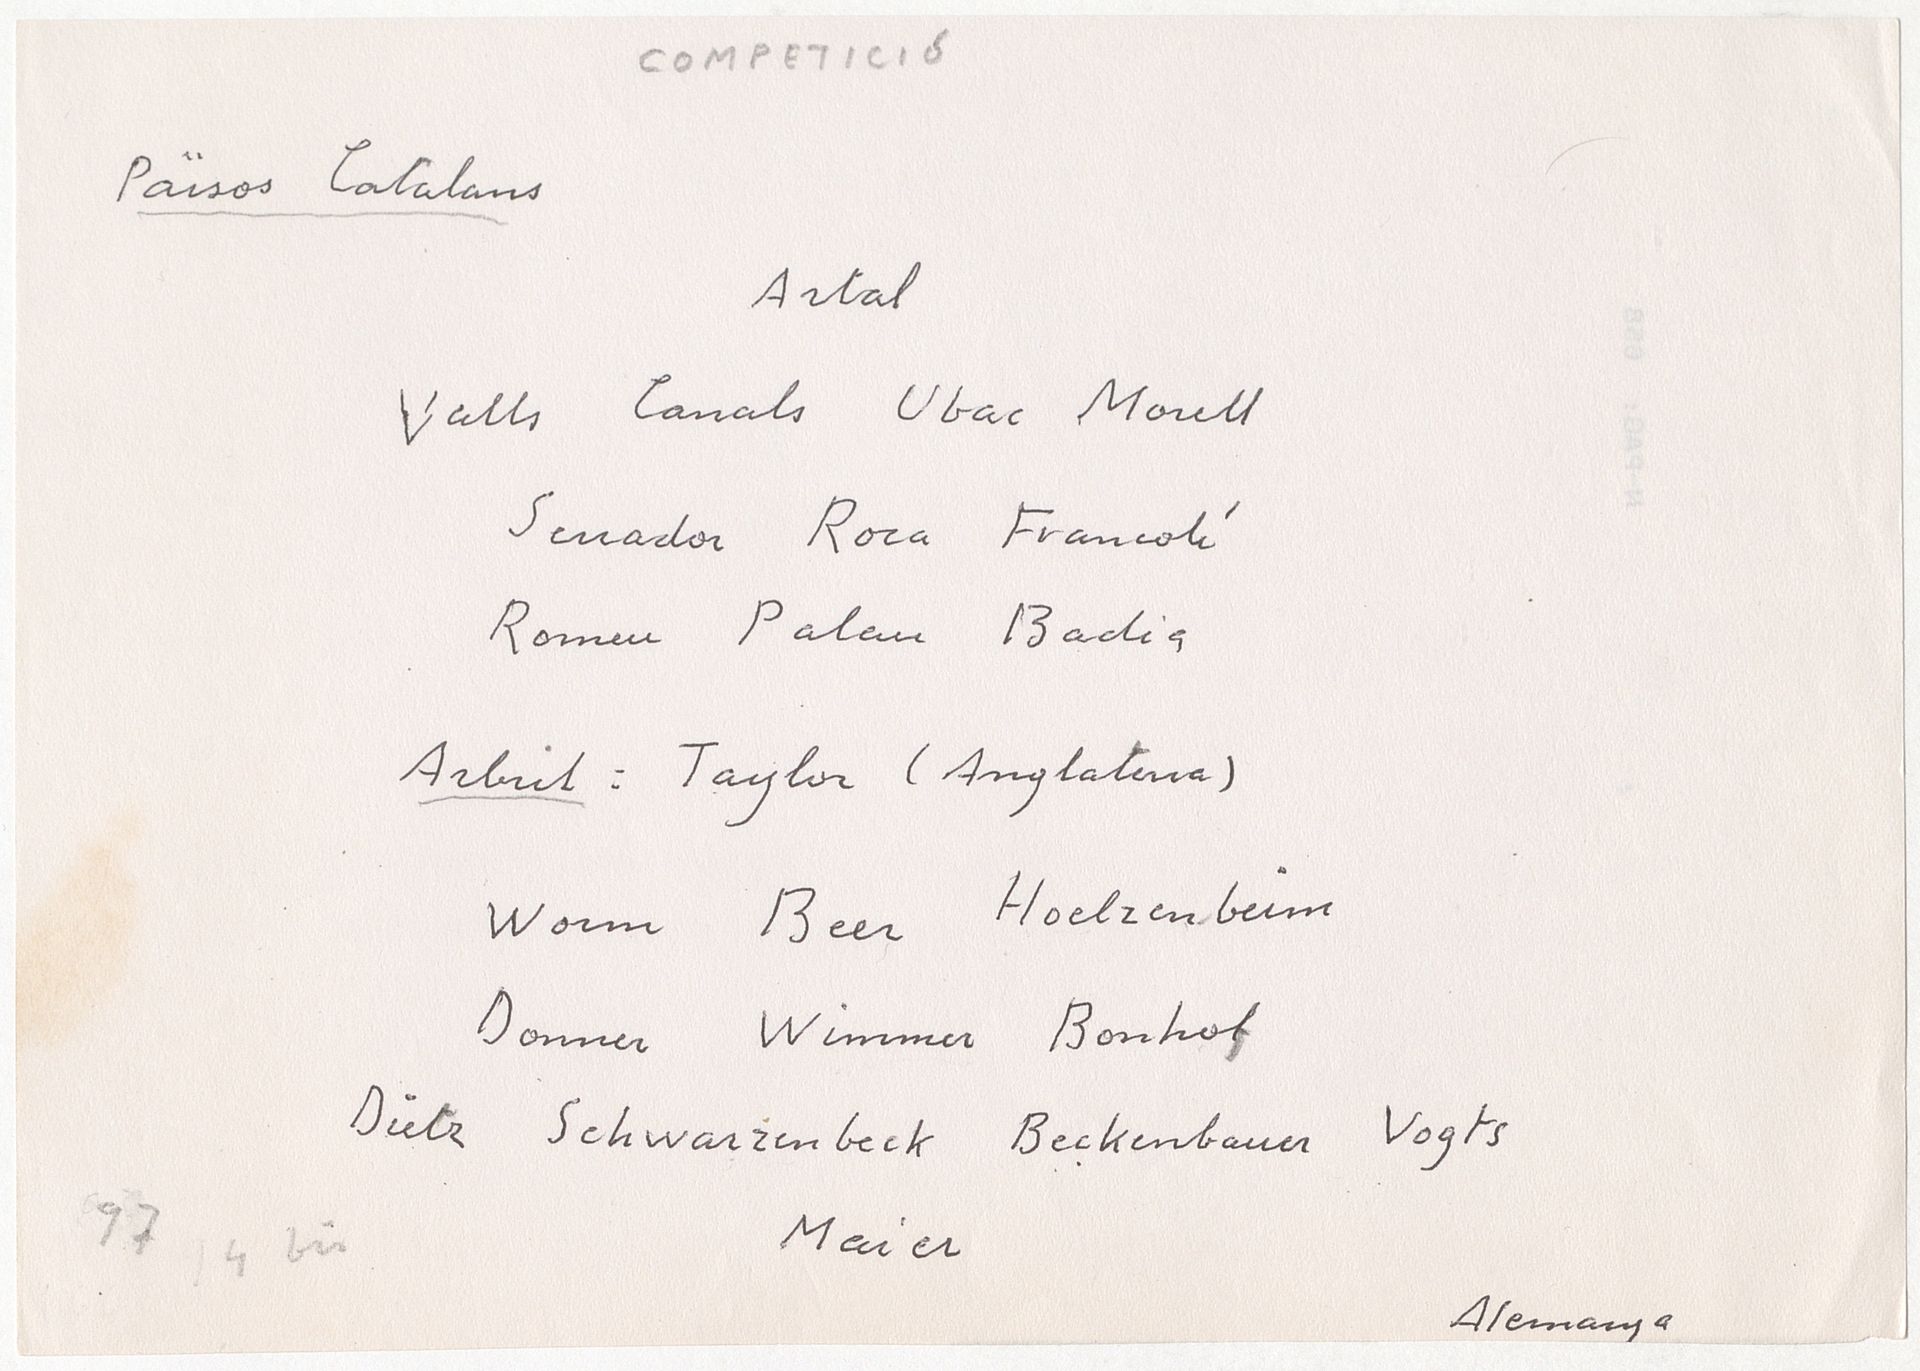 COMPETICIÓ
Països Catalans
Artal
Valls Canals Ubac Morell
Serrador Roca Francolí
Romeu Palau Badia
Arbrit : Taylor (Anglaterra)
Worm Beer Hoelzenbeim
Donner Wimmer Bonhof
Dietz Schwarzenbeck Beckenbauer Vogts
Maier
97 /4 bis
Alemanya